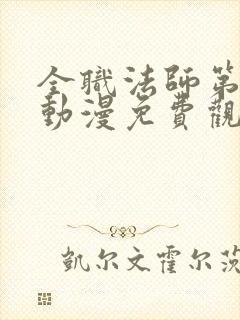 全職法師第
動漫免費觀
凱尔文霍尔茨